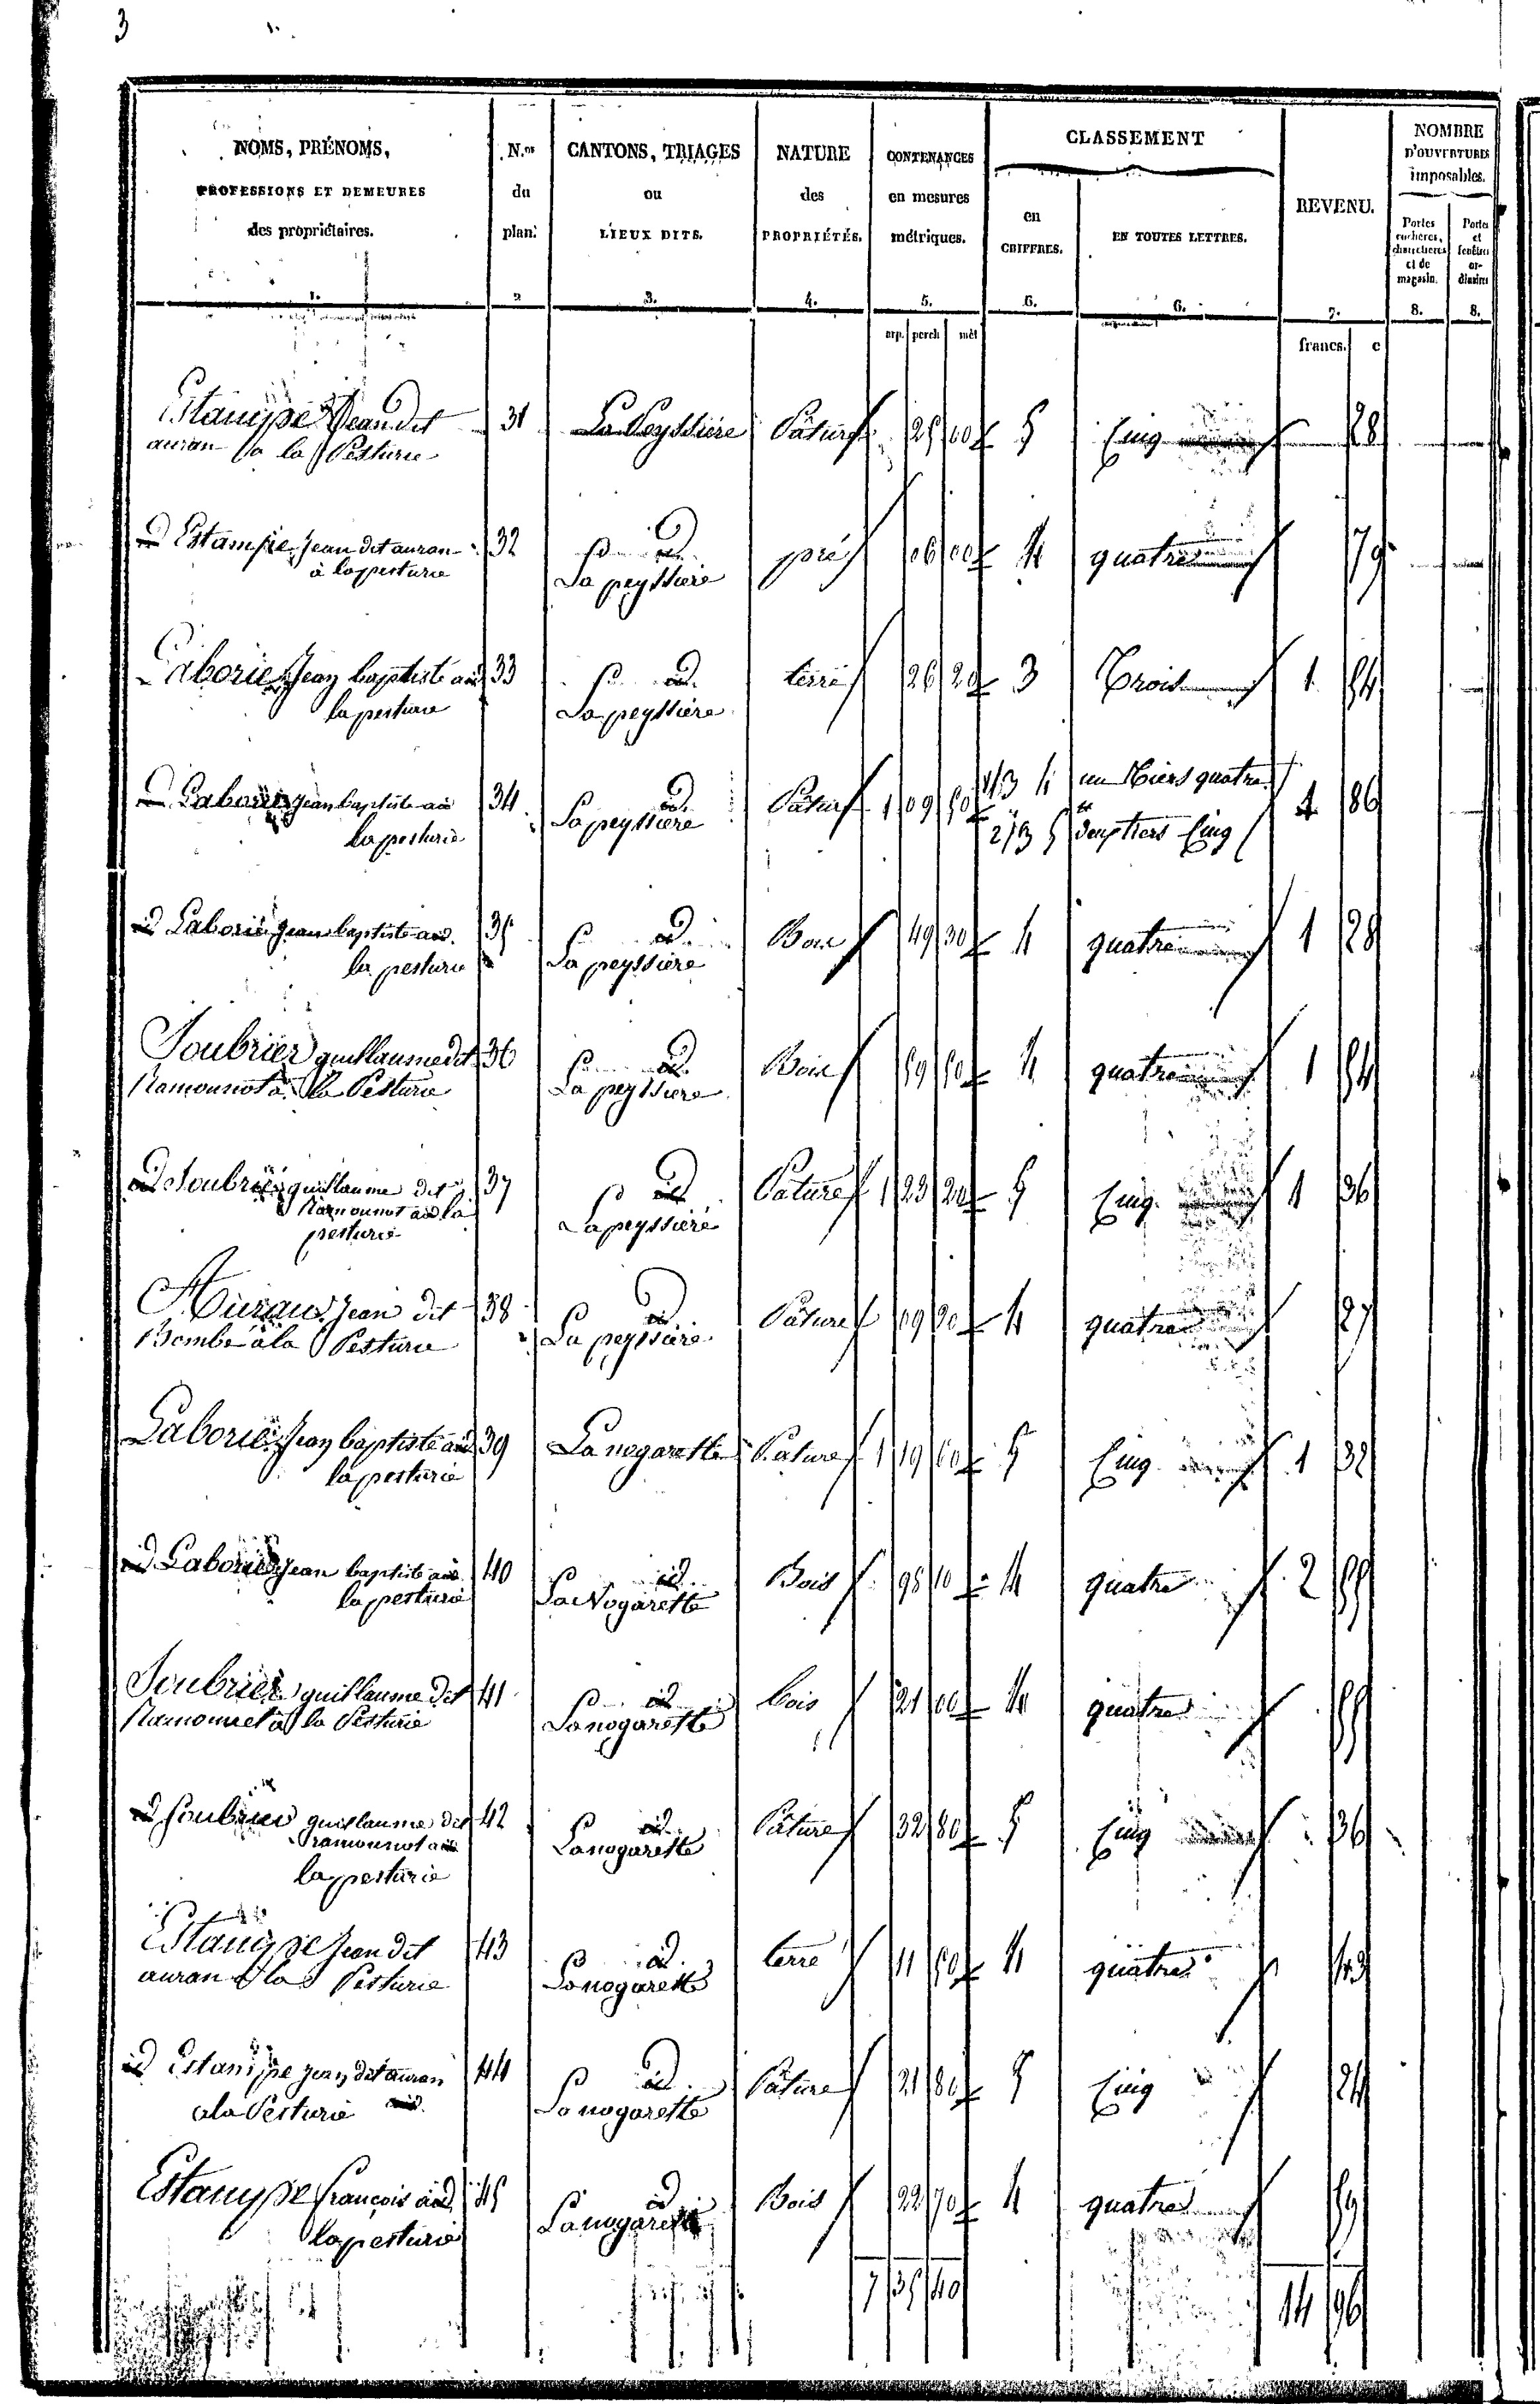 3
NOMS, PRÉNOMS,
PROFESSIONS ET DEMEURES
des propriétaires.
1.
N.os
du
plan.
2
CANTONS, TRIAGES
ou
LIEUX DITS.
3.
NATURE
des
PROPRIÉTÉS.
4.
CONTENANCES
en mesures
métriques.
5.
arp. perch mèt
CLASSEMENT
en
CHIFFRES.
6.
EN TOUTES LETTRES.
6.
REVENU.
7.
francs. c
NOMBRE
D'OUVERTURES
imposables.
Portes
cochères,
charretières
et de
magasin.
8.
Portes
et
fenêtres
or-
dinaires
8.
Estampe Jean dit 31 La Peyssiere Pâture 25 00 5 Cinq 28
auran a la Pesturie
id Estampe Jean dit auran 32 id pré 06 00 4 quatre 79
à la pesturie La peyssiere
Laborie Jean baptiste aud 33 id. terre 26 20 3 Trois 1 54
la pesturie La peyssiere
id Laborie Jean baptiste aud 34 id. Pature 1 09 50 1/3 4 un tiers quatre 1 86
la pesturie La peyssiere 2/3 5 deux tiers Cinq
id Laborie Jean baptiste aud. 35 id. Bois 49 30 4 quatre 1 28
la pesturie La peyssiere
Soubrier guillaume dit 36 id. Bois 59 50 4 quatre 1 54
Ramounot à la Pesturie La peyssiere
id Soubrier guillaume dit 37 id Pature 1 23 20 5 Cinq 1 36
Ramounot aud la La peyssiere
pesturie
Jean dit 38 id Pâture 09 20 4 quatre 27
Bombe à la Pesturie La peyssiere
Laborie Jean baptiste aud 39 La nogarette Pature 1 19 60 5 Cinq 1 32
la pesturie
id Laborie Jean baptiste aud 40 id. Bois 98 10 4 quatre 2 55
la pesturie La Nogarette
Soubrier guillaume dit 41 id bois 21 00 4 quatre 55
Ramounet à la Pesturie La nogarette
id Soubrier guillaume dit 42 id. Pâture 32 80 5 Cinq 36
ramounot aud La nogarette
la pesturie
Estampe Jean dit 43 id. terre 11 50 4 quatre 43
auran à la Pesturie La nogarette
id Estampe Jean dit auran 44 id. Pâture 21 80 5 Cinq 24
a la Pesturie aud. La nogarette
Estampe françois aud. 45 id Bois 22 70 4 quatre 59
la pesturie La nogarette
7 35 40 14 96